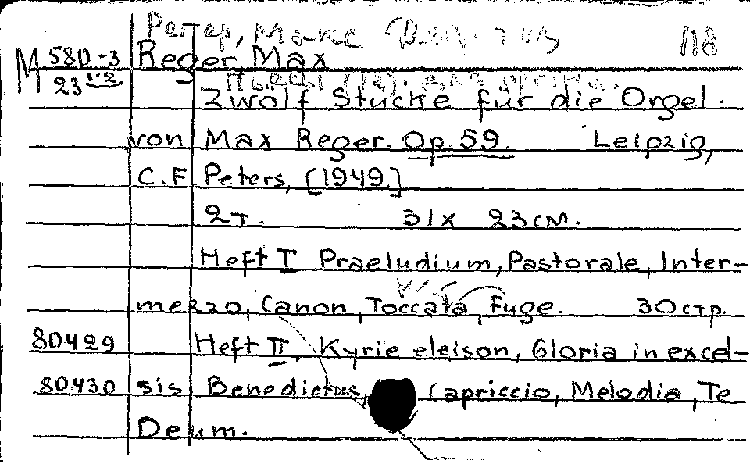 Регер, Макс
М 580-3 Reger, Max
23
Zwölf Stücke für die Orgel.
von Max Reger. Op.59. Leipzig,
C.F Peters, [1949.]
2т. 31х 23см.
Heft I Praeludium, Pastorale, Inter-
mezzo, Canon, Toccata, Fuge. 30стр.
80429 Heft II, Kyrie eleison, Gloria in excel-
80430 sis Benedictus, Capriccio, Melodia, Te
Deum.